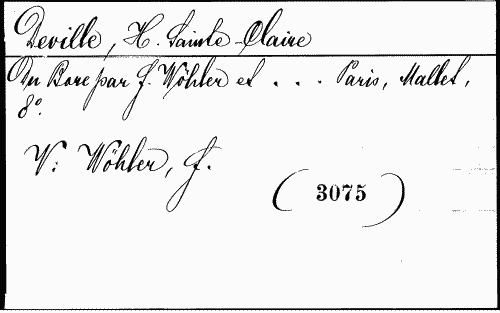 Deville, H. Sainte-Claire
Du Bore par F. Wöhler et . . . Paris, Mallet,
8°.
V: Wöhler, F.
(3075)